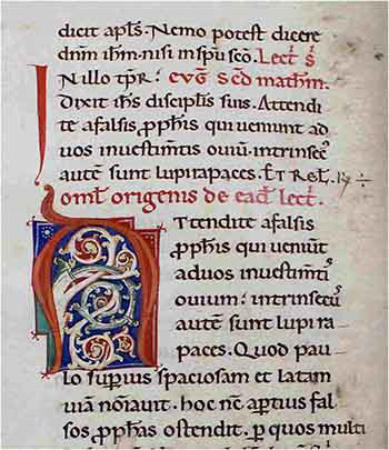 dicit apl̄s. Nemo potest dicere
dn̄m ih̄m. nisi in sp̄u sc̄o. Lect̄. s̄
In illo tp̄r. euḡ. Sc̄d math̄m.
Dixit ih̄s discipl̄is suis. Attendi
te afalsis ꝓph̄is qui ueniunt ad
uos inuestim̄tis ouiū. intrinsec᷒
autē sunt lupi rapaces. Et Rel̄.
omt̄. origenis de ead̄. lect̄.
Attendite afalsis
ꝓph̄is qui ueniūt
ad uos inuestim̄tis
ouium. intrinsecus
autē sunt lupi ra
paces. Quod pau
lo suꝑius spaciosam et latam
uiā noīauit. hoc nē aꝑtius fal
sos ꝓph̄as ostendit. ꝑ quos multi